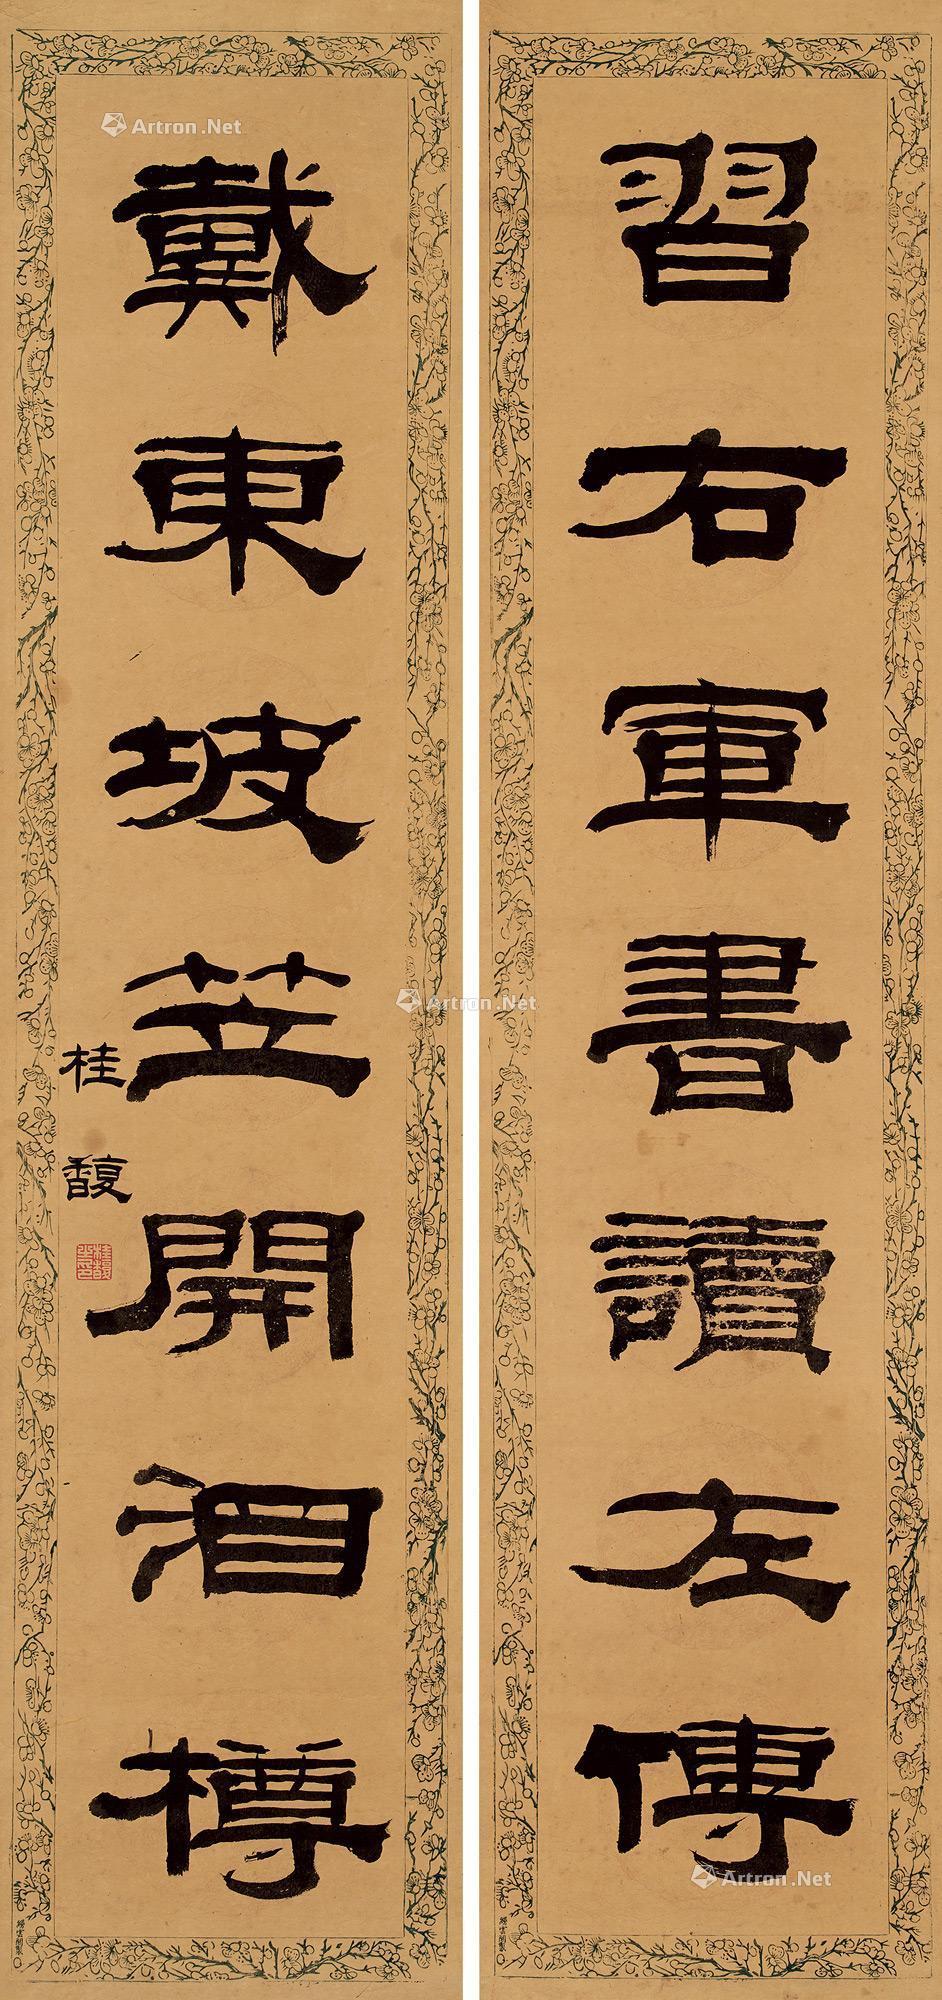 習右軍書讀左傳
戴東坡笠開酒樽
桂馥
Artron.Net
Artron.Net
Artron.Net